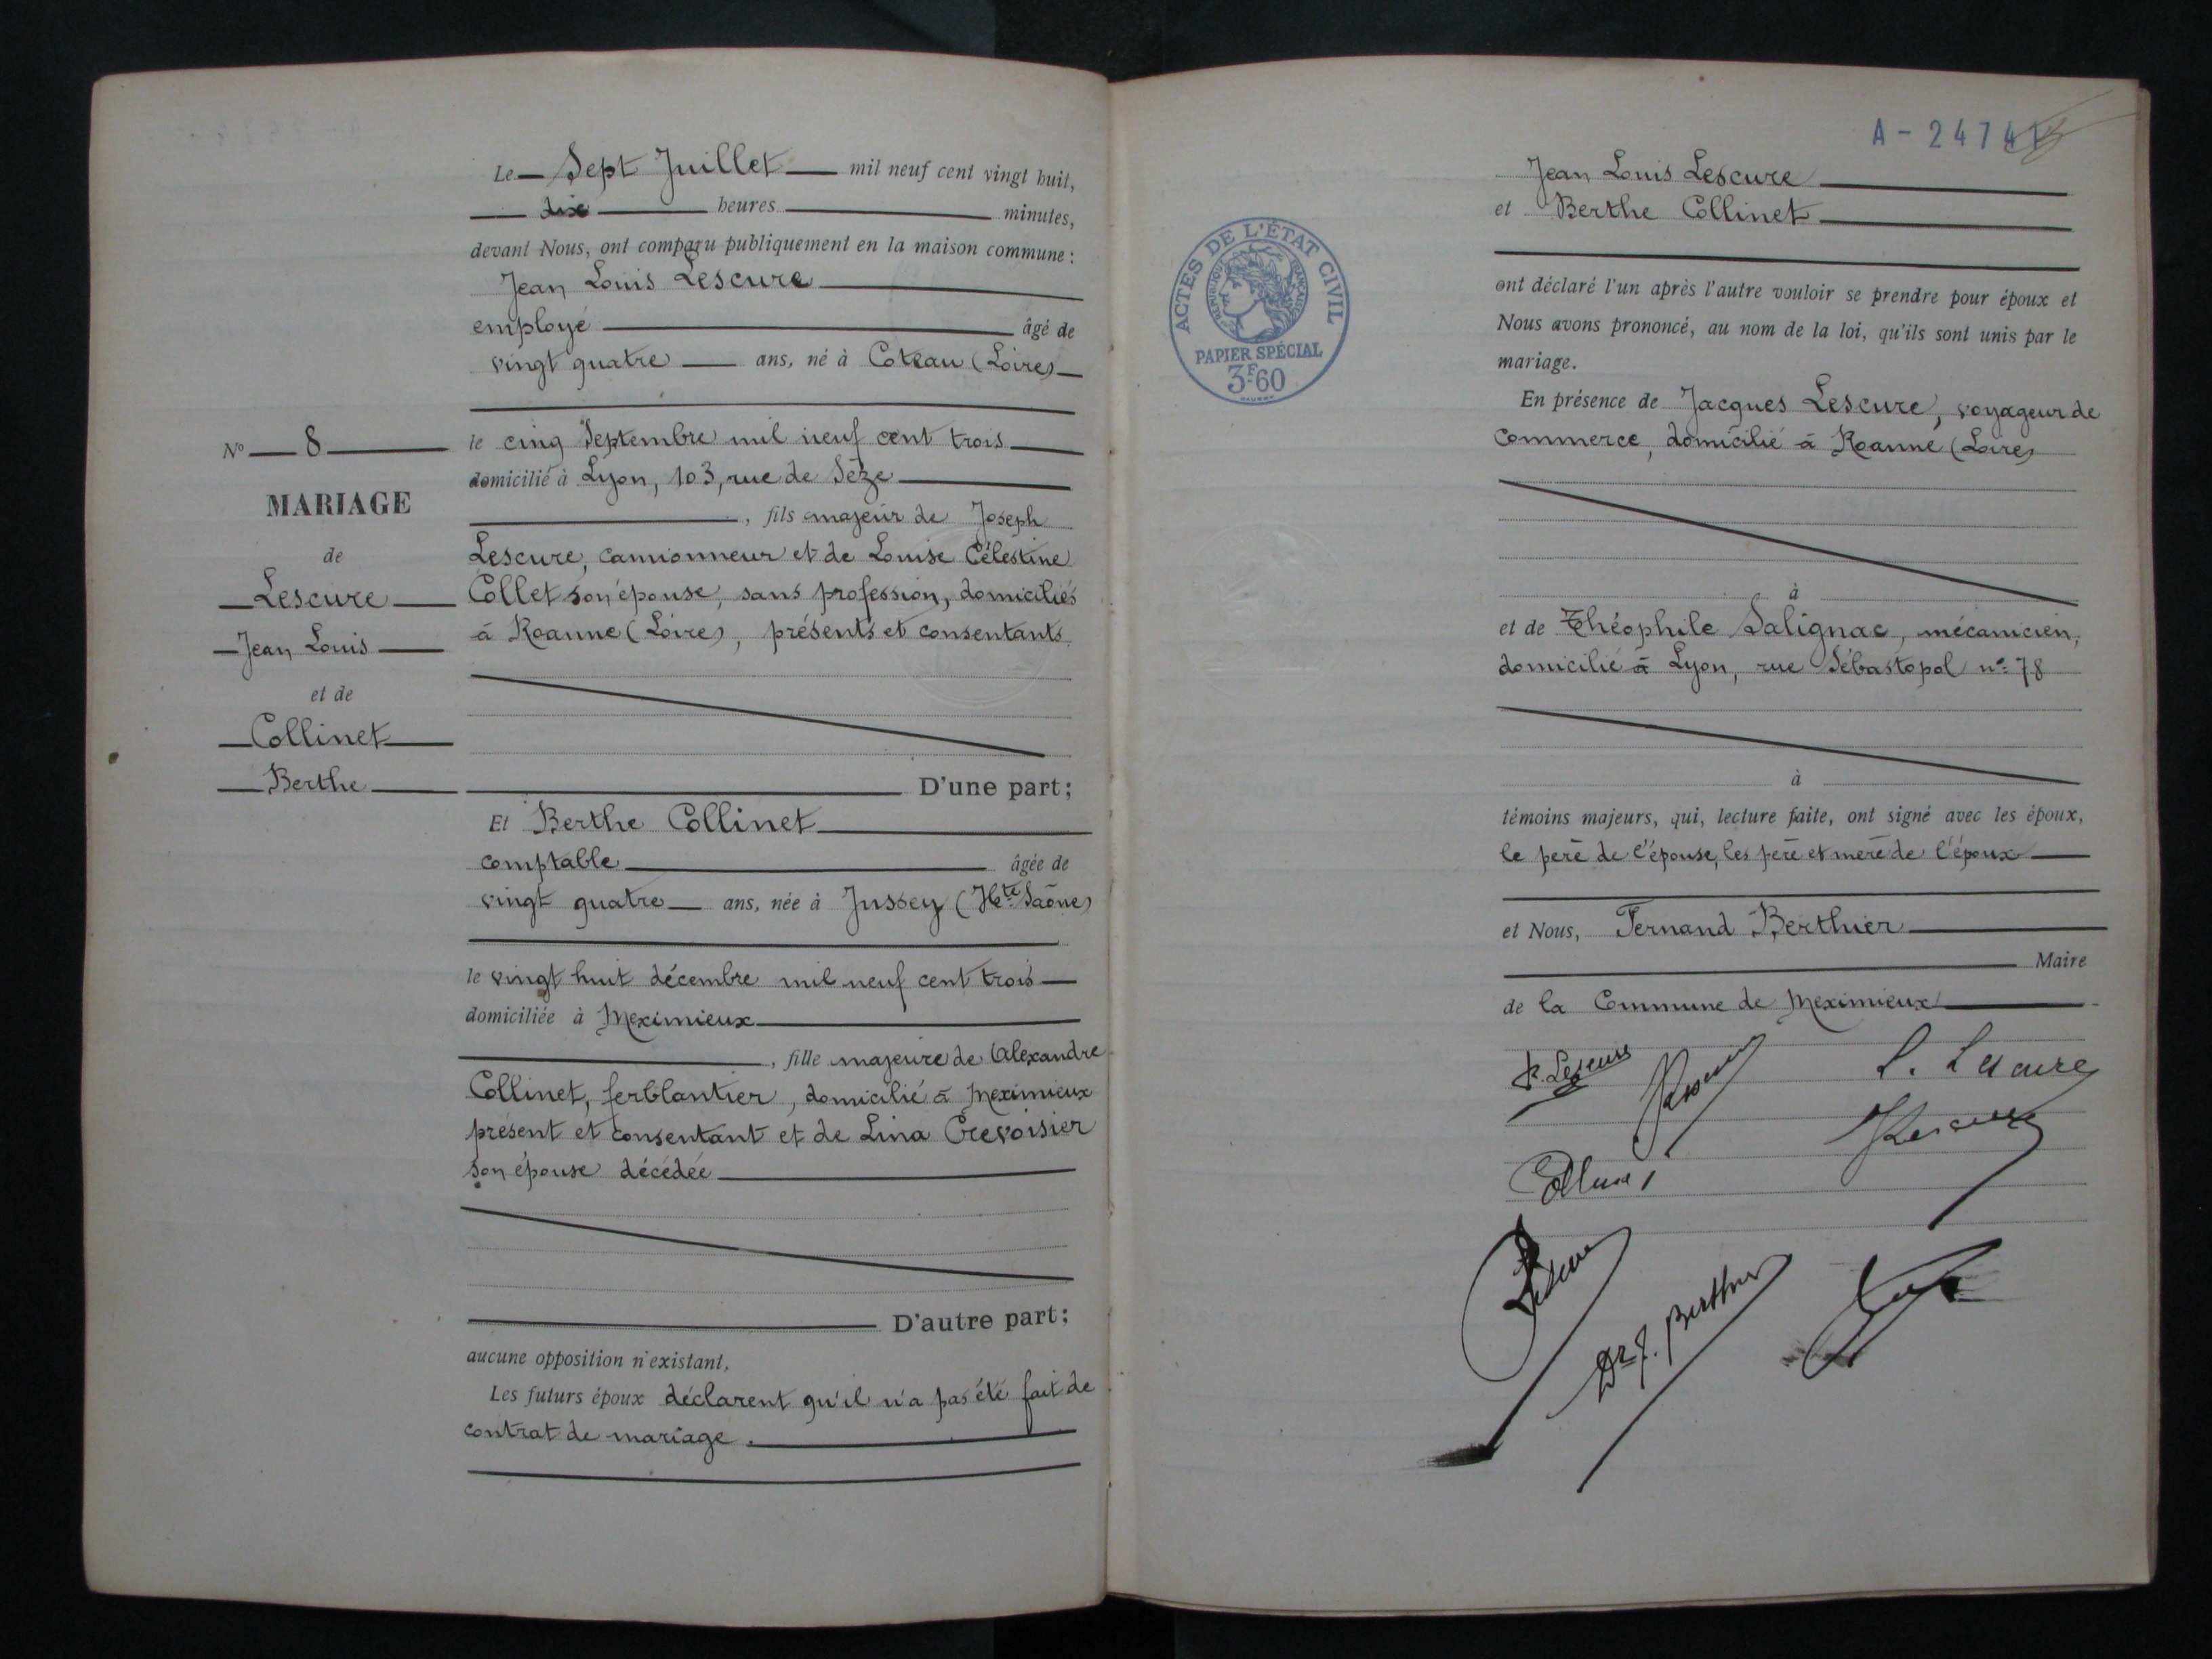 Le Sept Juillet mil neuf cent vingt huit,
dix heures minutes,
devant Nous, ont comparu publiquement en la maison commune :
Jean Louis Lescure
employé âgé de
vingt quatre ans, né à Coteau (Loire)
le cinq Septembre mil neuf cent trois
domicilié à Lyon, 103, rue de Sèze
, fils majeur de Joseph
Lescure, camionneur et de Louise Célestine
Collet son épouse, sans profession, domiciliés
à Roanne (Loire), présents et consentants
D'une part ;
Et Berthe Collinet
comptable âgée de
vingt quatre ans, née à Jussey (Hte Saône)
le vingt huit décembre mil neuf cent trois
domiciliée à Meximieux
, fille majeure de Alexandre
Collinet, ferblantier, domicilié à Meximieux
présent et consentant et de Lina Crevoisier
son épouse décédée
D'autre part ;
aucune opposition n'existant,
Les futurs époux déclarent qu'il n'a pas été fait de
contrat de mariage.
No 8
MARIAGE
de
Lescure
Jean Louis
et de
Collinet
Berthe
A - 2474
Jean Louis Lescure
et Berthe Collinet
ont déclaré l'un après l'autre vouloir se prendre pour époux et
Nous avons prononcé, au nom de la loi, qu'ils sont unis par le
mariage.
En présence de Jacques Lescure, voyageur de
commerce, domicilié à Roanne (Loire)
à
et de Théophile Salignac, mécanicien,
domicilié à Lyon, rue Sébastopol no 78
à
témoins majeurs, qui, lecture faite, ont signé avec les époux,
le père de l'épouse, les père et mère de l'époux
et Nous, Fernand Berthier
Maire
de la Commune de Meximieux
L. Lescure
Lescure
Collinet
Lescure
Dr F. Berthier
ACTES DE L'ÉTAT CIVIL
RÉPUBLIQUE FRANÇAISE
PAPIER SPÉCIAL
3F60